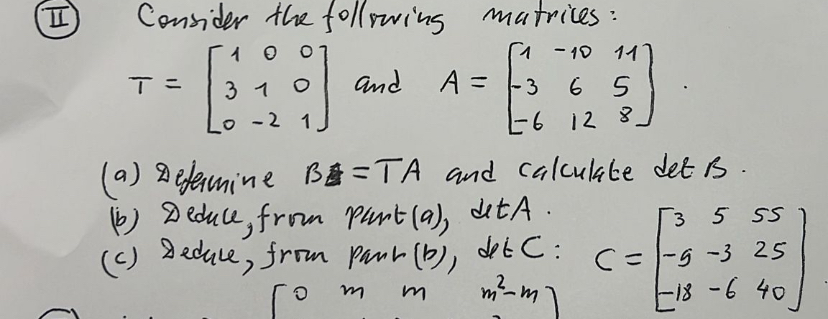 II Consider the following matrices:
T = [1 0 0; 3 1 0; 0 -2 1] and A = [1 -10 11; -3 6 5; -6 12 8].
(a) Determine B = TA and calculate det B.
(b) Deduce, from part(a), det A.
(c) Deduce, from part (b), det C: C = [3 5 55; -9 -3 25; -18 -6 40]
[0 m m m²-m]